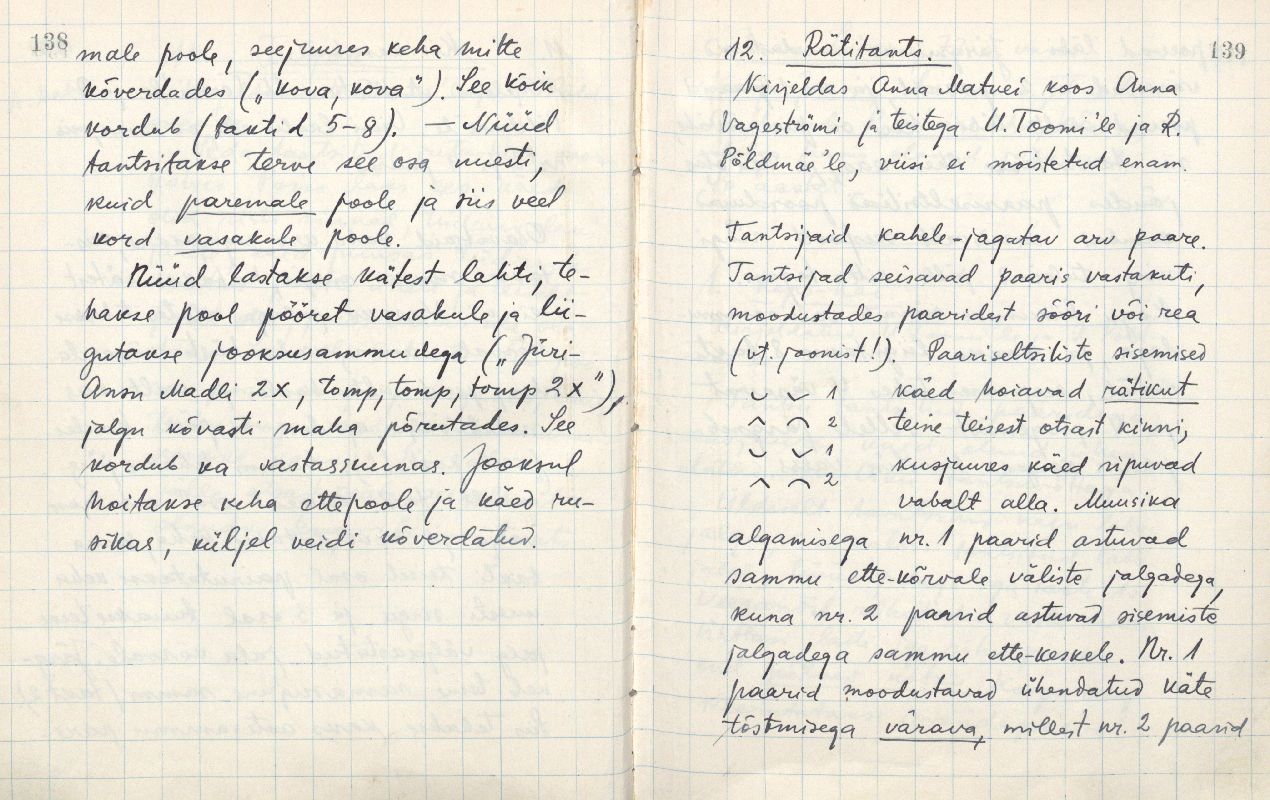 138
male poole, seejuures keha mitte
kõverdades („kova, kova"). See kõik
kordub (taktid 5-8). — Nüüd
tantsitakse terve see osa uuesti,
kuid paremale poole ja siis veel
kord vasakule poole.
Nüüd lastakse kätest lahti, te-
hakse pool pööret vasakule ja lii-
gutakse jooksusammudega („Jüri-
Ansu Madli 2x, tomp, tomp, tomp 2x"),
jalgu kõvasti maha põrutades. See
kordub ka vastassuunas. Jooksul
hoitakse keha ettepoole ja käed ru-
sikas, küljel veidi kõverdatud.
139
12. Rätitants.
Kirjeldas Anna Matvei koos Anna
Vageströmi ja teistega U. Toomi'le ja R.
Põldmäe'le, viisi ei mõistetud enam.
Tantsijaid kahele-jagatav arv paare.
Tantsijad seisavad paaris vastakuti,
moodustades paaridest sõõri või rea
(vt. joonist!). Paariseltsiliste sisemised
1 käed hoiavad rätikut
2 teine teisest otsast kinni,
1 kusjuures käed ripuvad
2 vabalt alla. Muusika
algamisega nr. 1 paarid astuvad
sammu ette-kõrvale väliste jalgadega,
kuna nr. 2 paarid astuvad sisemiste
jalgadega sammu ette-keskele. Nr. 1
paarid moodustavad ühendatud käte
tõstmisega värava, millest nr. 2 paarid